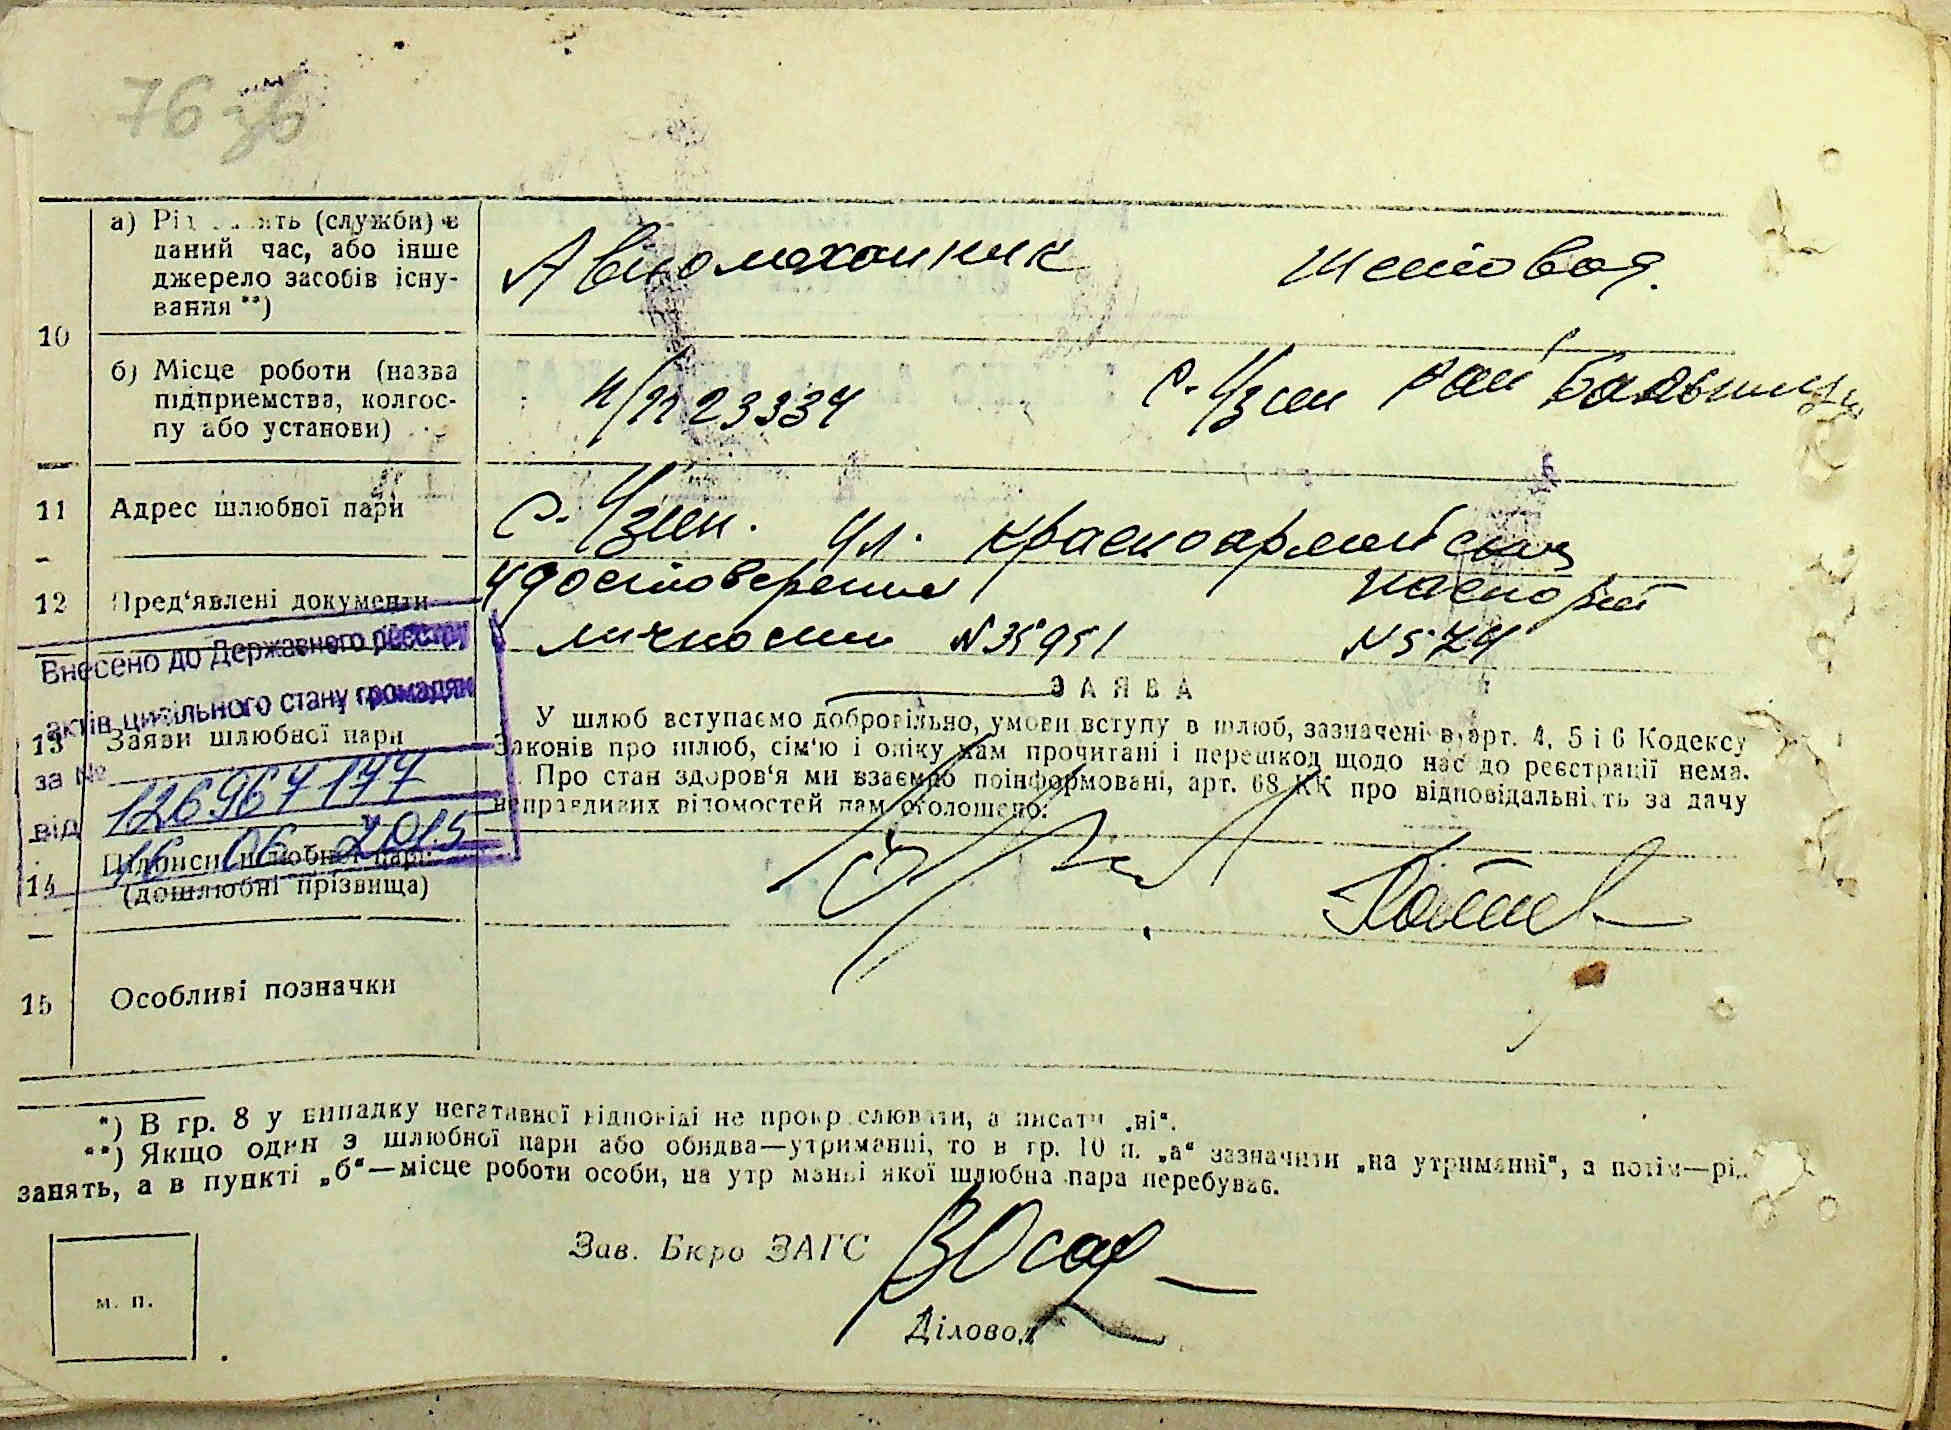 76 зв
а) Рід занять (служби) в
даний час, або інше
джерело засобів існу-
вання **)
Автомеханик
10
б) Місце роботи (назва
підприємства, колгос-
пу або установи)
п/п 23334
с. Узин рай больница
11 Адрес шлюбної пари
с. Узин. ул. Красноармейская
12 Пред'явлені документи
удостоверение паспорт
личности N 35951 N 574
Внесено до Державного реєстру
актів цивільного стану громадян
за № 126967177
від 16 06 2015
13 Заяви шлюбної пари
ЗАЯВА
У шлюб вступаємо добровільно, умови вступу в шлюб, зазначені в арт. 4, 5 і 6 Кодексу
Законів про шлюб, сім'ю і опіку нам прочитані і перешкод щодо нас до реєстрації нема.
Про стан здоров'я ми взаємно поінформовані, арт. 68 КК про відповідальність за дачу
неправдивих відомостей нам оголошено:
14 Підписи шлюбної пари
(дошлюбні прізвища)
15 Особливі позначки
*) В гр. 8 у випадку негативної відповіді не прокреслювати, а писати „ні“.
**) Якщо один з шлюбної пари або обидва—утриманці, то в гр. 10 п. „а“ зазначити „на утриманні“, а потім—рід
занять, а в пункті „б“—місце роботи особи, на утриманні якої шлюбна пара перебуває.
Зав. Бюро ЗАГС
м. п.
Діловод